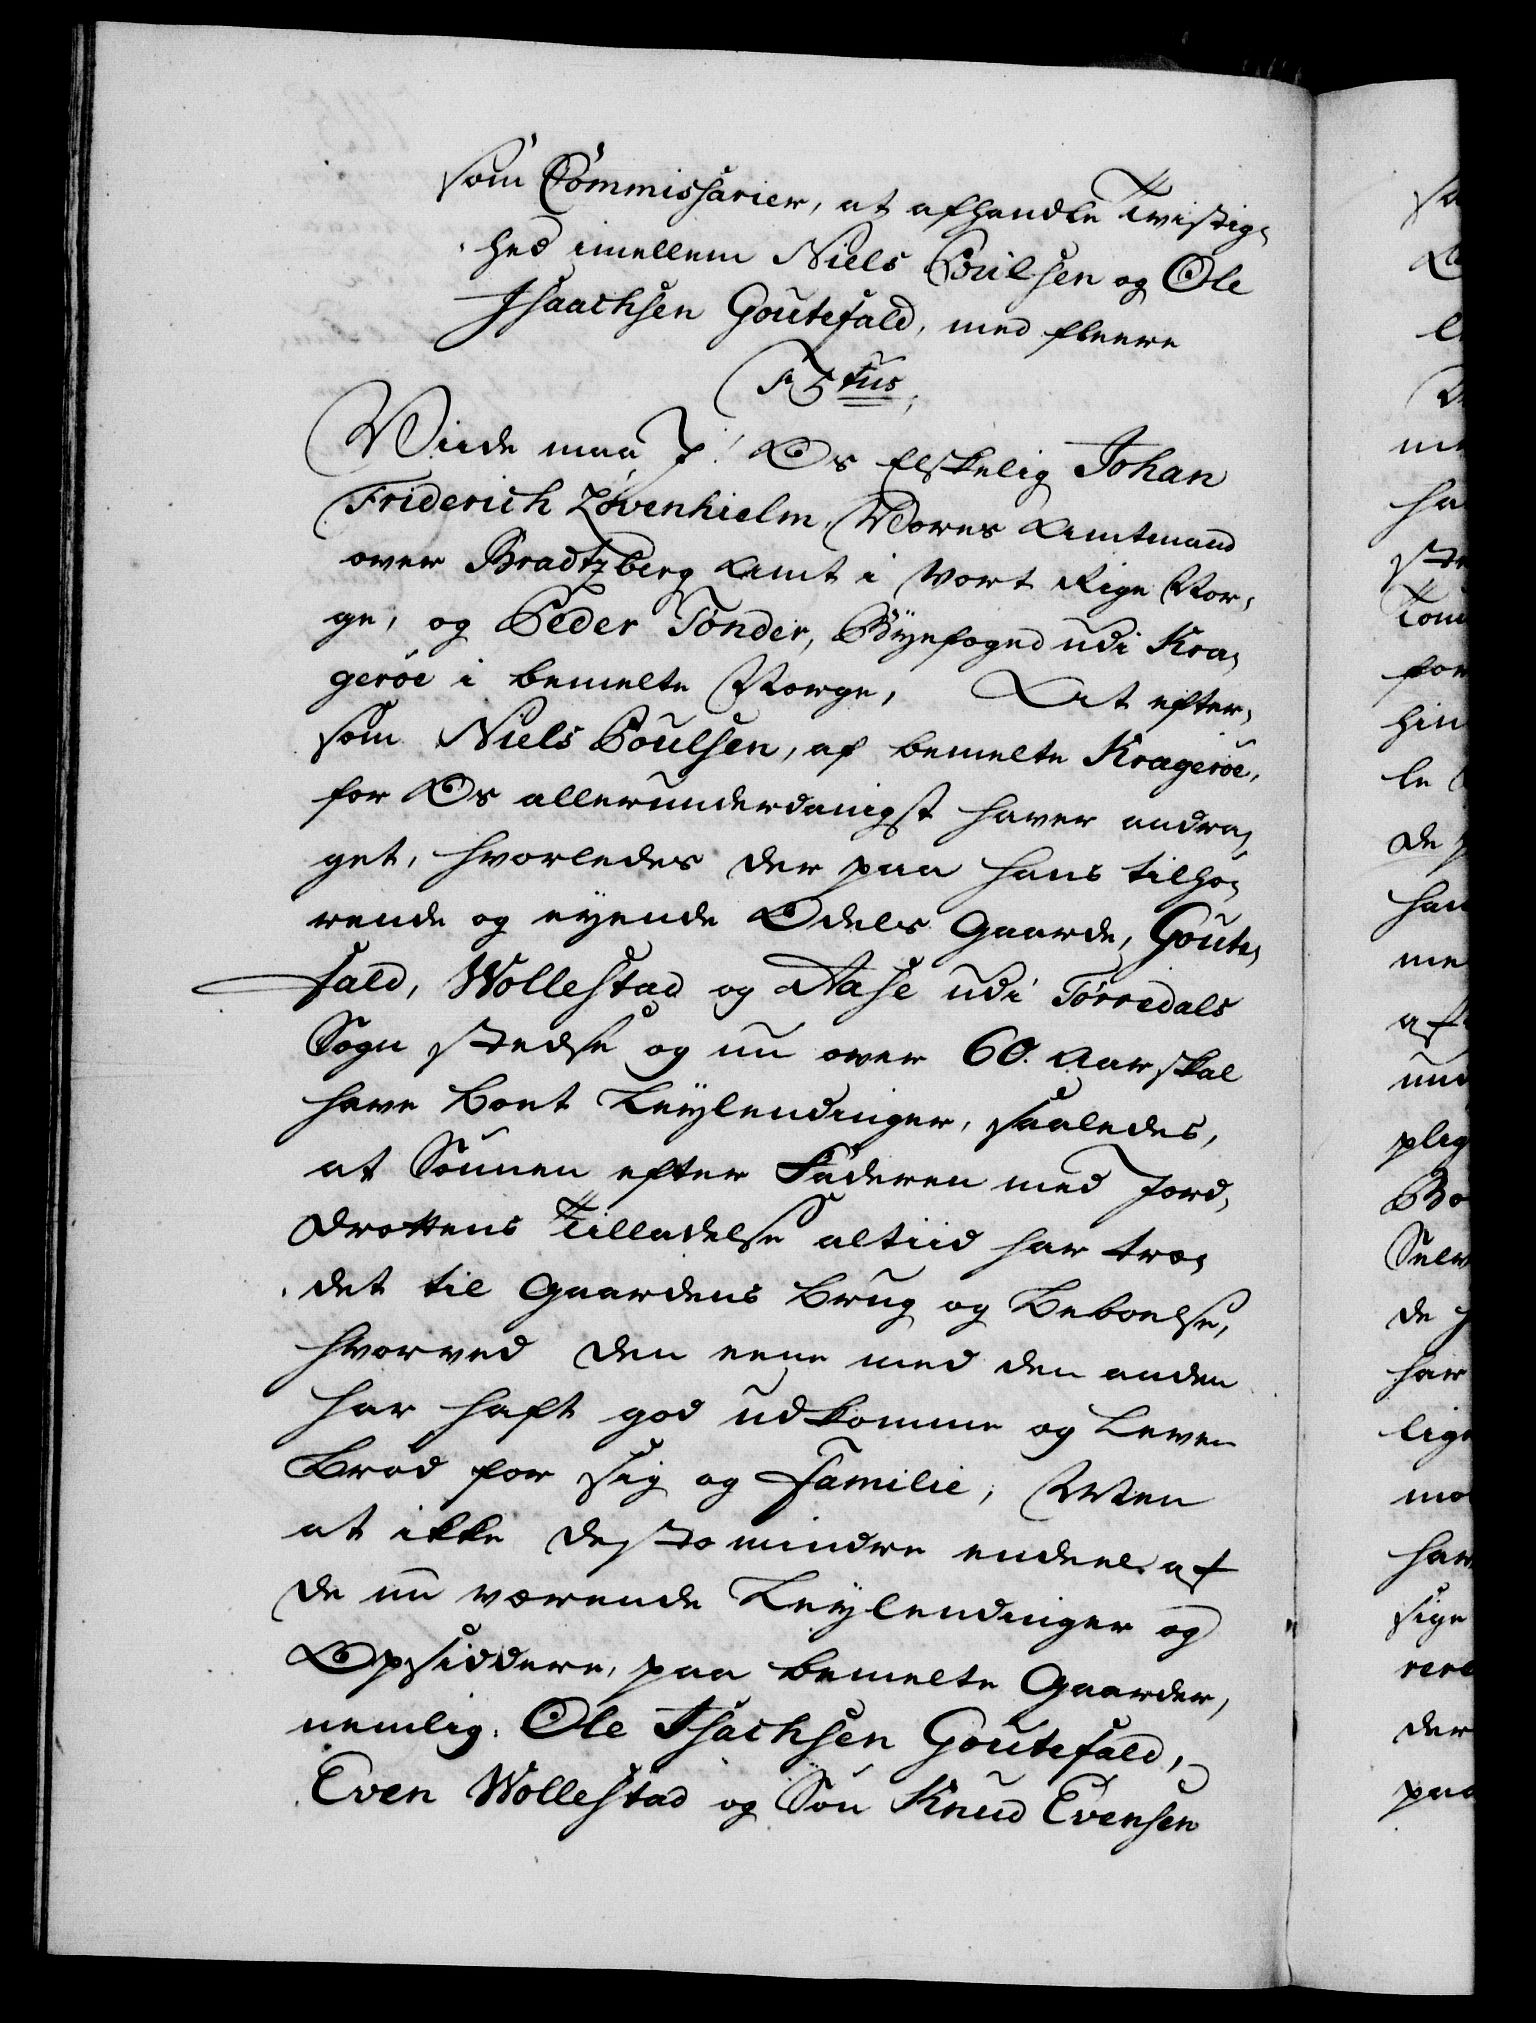 som Commissarier, at afhandle Twistig,
hed imellem Niels Poulsen og Ole
Isaachsen Goutefald, med fleere
F5tus,
Viide maa I! Os Elskelig Johan
Friderich Løvenhielm, Vores Amtmand
over Bradtzberg Amt i vort Rige Nor,
ge, og Peder Tønder, Byefoged udi Kra,
gerøe i bemelte Norge, At efter,
som Niels Poulsen, af bemelte Kragerøe,
for Os allerunderdanigst haver andra,
get, hvorledes der paa hans tilhø,
rende og eyende Odels Gaarde, Goute,
fald, Wollestad og Aase udi Tørredals
Sogn stedse og nu over 60. Aar skal
have Boet Leylendinger, saaledes,
at Sønnen efter Faderen med Jord,
drottens Tilladelse altiid har træ,
det til Gaardens Brug og Beboelse,
hvorved den eene med den anden
har haft god udkomme og Leve,
Brød for sig og Familie, Men
at ikke desto mindre endeel af
de nu værende Leylendinger og
Opsiddere, paa bemelte Gaarder,
nemlig. Ole Isachsen Goutefald,
Even Wollestad og Søn Knud Evensen